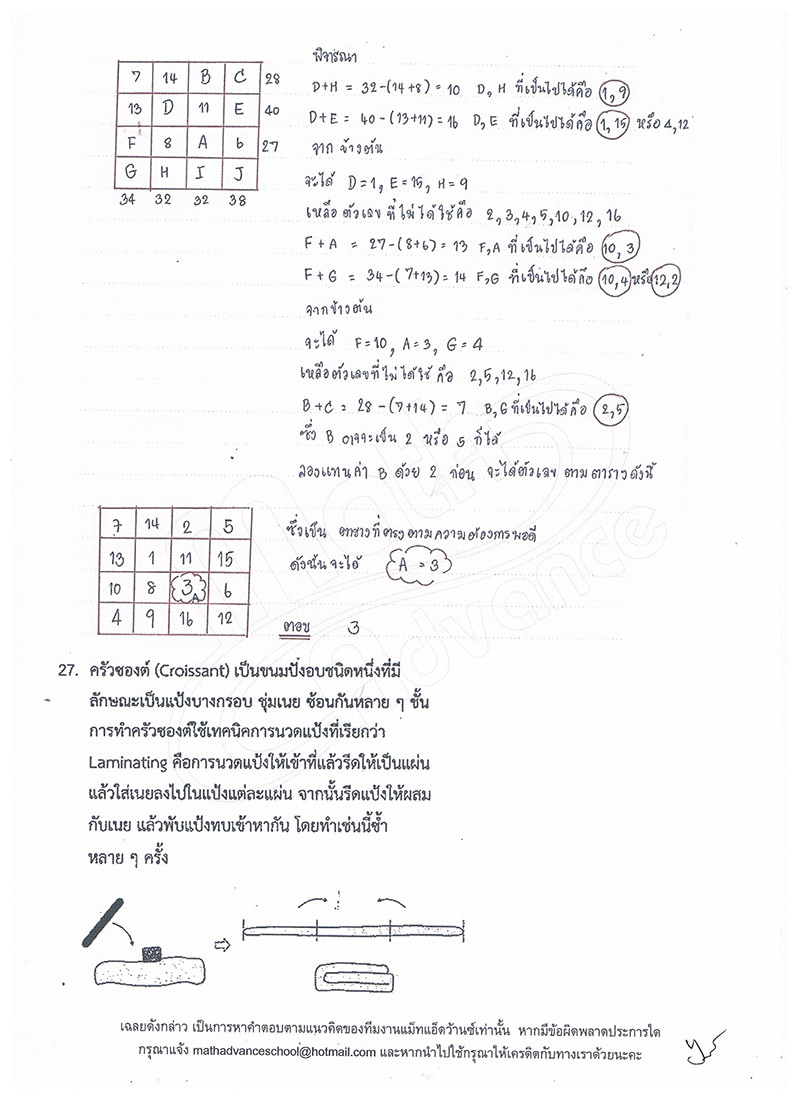 พิจารณา
7 14 B C 28
D+H = 32-(14+8) = 10 D, H ที่เป็นไปได้คือ 1,9
13 D 11 E 40
D+E = 40-(13+11) = 16 D, E ที่เป็นไปได้คือ 1,15 หรือ 4,12
F 8 A 6 27
จาก ข้างต้น
G H I J
จะได้ D=1, E=15, H=9
34 32 32 38
เหลือ ตัวเลข ที่ไม่ได้ใช้คือ 2,3,4,5,10,12,16
F+A = 27-(8+6) = 13 F,A ที่เป็นไปได้คือ 10,3
F+G = 34-(7+13) = 14 F,G ที่เป็นไปได้คือ 10,4 หรือ 12,2
จากข้างต้น
จะได้ F=10, A=3, G=4
เหลือตัวเลขที่ไม่ได้ใช้ คือ 2,5,12,16
B+C = 28-(7+14) = 7 B,C ที่เป็นไปได้คือ 2,5
ซึ่ง B อาจจะเป็น 2 หรือ 5 ก็ได้
ลองแทนค่า B ด้วย 2 ก่อน จะได้ตัวเลข ตามตารางดังนี้
7 14 2 5
ซึ่งเป็น ตารางที่ตรงตามความต้องการพอดี
13 1 11 15
ดังนั้นจะได้ A = 3
10 8 3 A 6
4 9 16 12
ตอบ 3
Math Advance
27. ครัวซองต์ (Croissant) เป็นขนมปังอบชนิดหนึ่งที่มี
ลักษณะเป็นแป้งบางกรอบ ชุ่มเนย ซ้อนกันหลาย ๆ ชั้น
การทำครัวซองต์ใช้เทคนิคการนวดแป้งที่เรียกว่า
Laminating คือการนวดแป้งให้เข้าที่แล้วรีดให้เป็นแผ่น
แล้วใส่เนยลงไปในแป้งแต่ละแผ่น จากนั้นรีดแป้งให้ผสม
กับเนย แล้วพับแป้งทบเข้าหากัน โดยทำเช่นนี้ซ้ำ
หลาย ๆ ครั้ง
เฉลยดังกล่าว เป็นการหาคำตอบตามแนวคิดของทีมงานแม็ทแอ็ดว้านซ์เท่านั้น หากมีข้อผิดพลาดประการใด
กรุณาแจ้ง mathadvanceschool@hotmail.com และหากนำไปใช้กรุณาให้เครดิตกับทางเราด้วยนะคะ